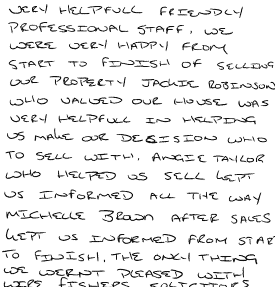 VERY HELPFULL FRIENDLY
PROFESSIONAL STAFF, WE
WERE VERY HAPPY FROM
START TO FINISH OF SELLING
OUR PROPERTY JACKIE ROBINSON
WHO VALUED OUR HOUSE WAS
VERY HELPFULL IN HELPING
US MAKE OUR DECISION WHO
TO SELL WITH, ANGIE TAYLOR
WHO HELPED US SELL KEPT
US INFORMED ALL THE WAY
MICHELLE BROWN AFTER SALES
KEPT US INFORMED FROM STAR
TO FINISH, THE ONLY THING
WE WERNT PLEASED WITH
WERE FISHERS SOLICITORS